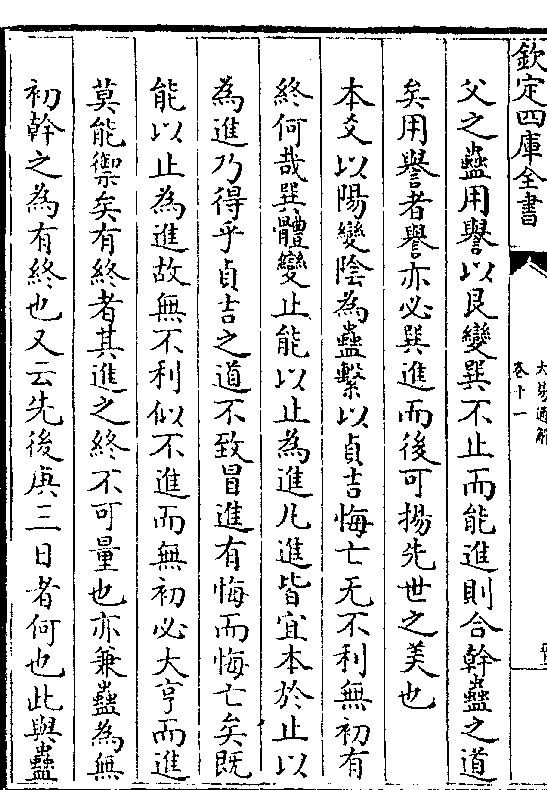 欽定四庫全書
大易通解
卷十一
父之蠱用譽以艮變巽不止而能進則合幹蠱之道
矣用譽者譽亦必巽進而後可揚先世之美也
本爻以陽變陰為蠱繫以貞吉悔亡无不利無初有
終何哉巽體變止能以止為進凡進皆宜本於止以
為進乃得乎貞吉之道不致冒進有悔而悔亡矣既
能以止為進故無不利似不進而無初必大亨而進
莫能禦矣有終者其進之終不可量也亦兼蠱為無
初幹之為有終也又云先後庚三日者何也此與蠱